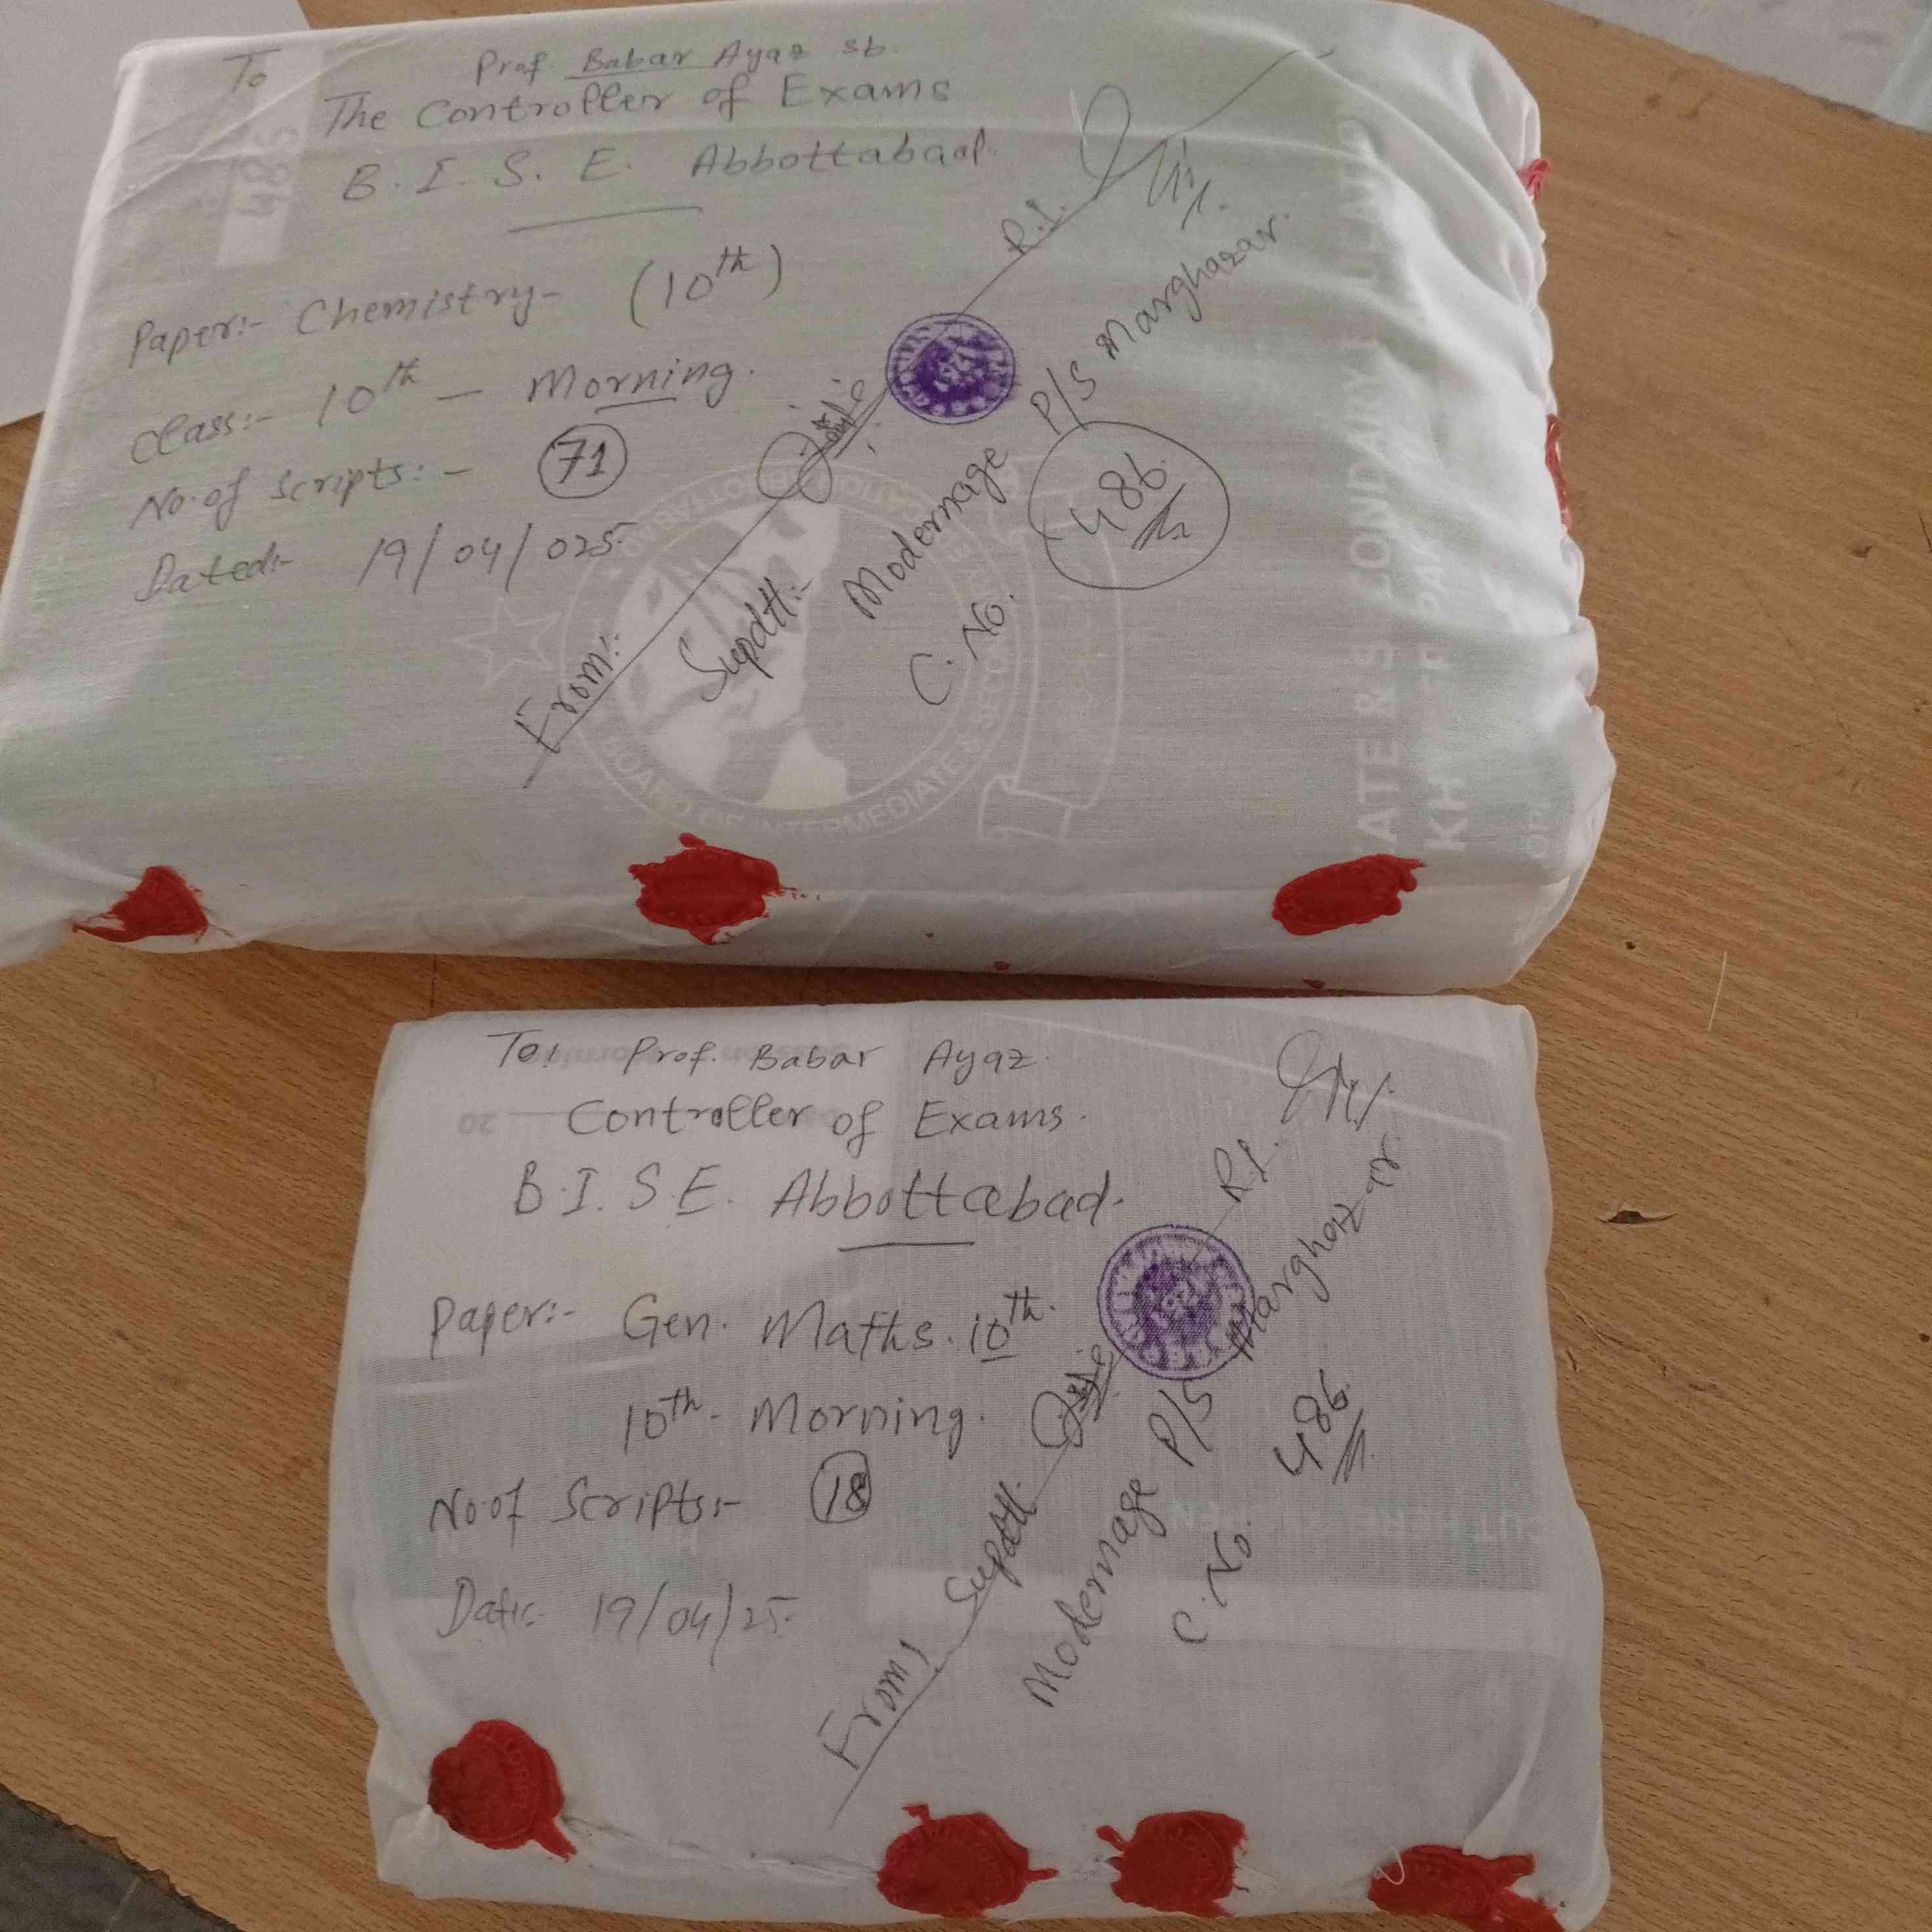 To
Prof. Babar Ayaz sb.
The Controller of Exams
B. I. S. E. Abbottabad.
486
Paper:- Chemistry- (10th)
Class:- 10th - Morning.
No. of Scripts:- 71
Dated:- 19/04/025
From:
R.I.
Supdtt:-
Modernage P/S Marghazar.
C. No. 486
BOARD OF INTERMEDIATE & SECONDARY
ATE & SECONDARY EDUCATIO
To: Prof. Babar Ayaz.
Controller of Exams.
B.I.S.E. Abbottabad.
Paper:- Gen. Maths. 10th.
10th - Morning.
No. of Scripts:- 18
Date:- 19/04/25
From,
R.I.
Supdtt.
Modernage P/S Marghazar.
C. No. 486